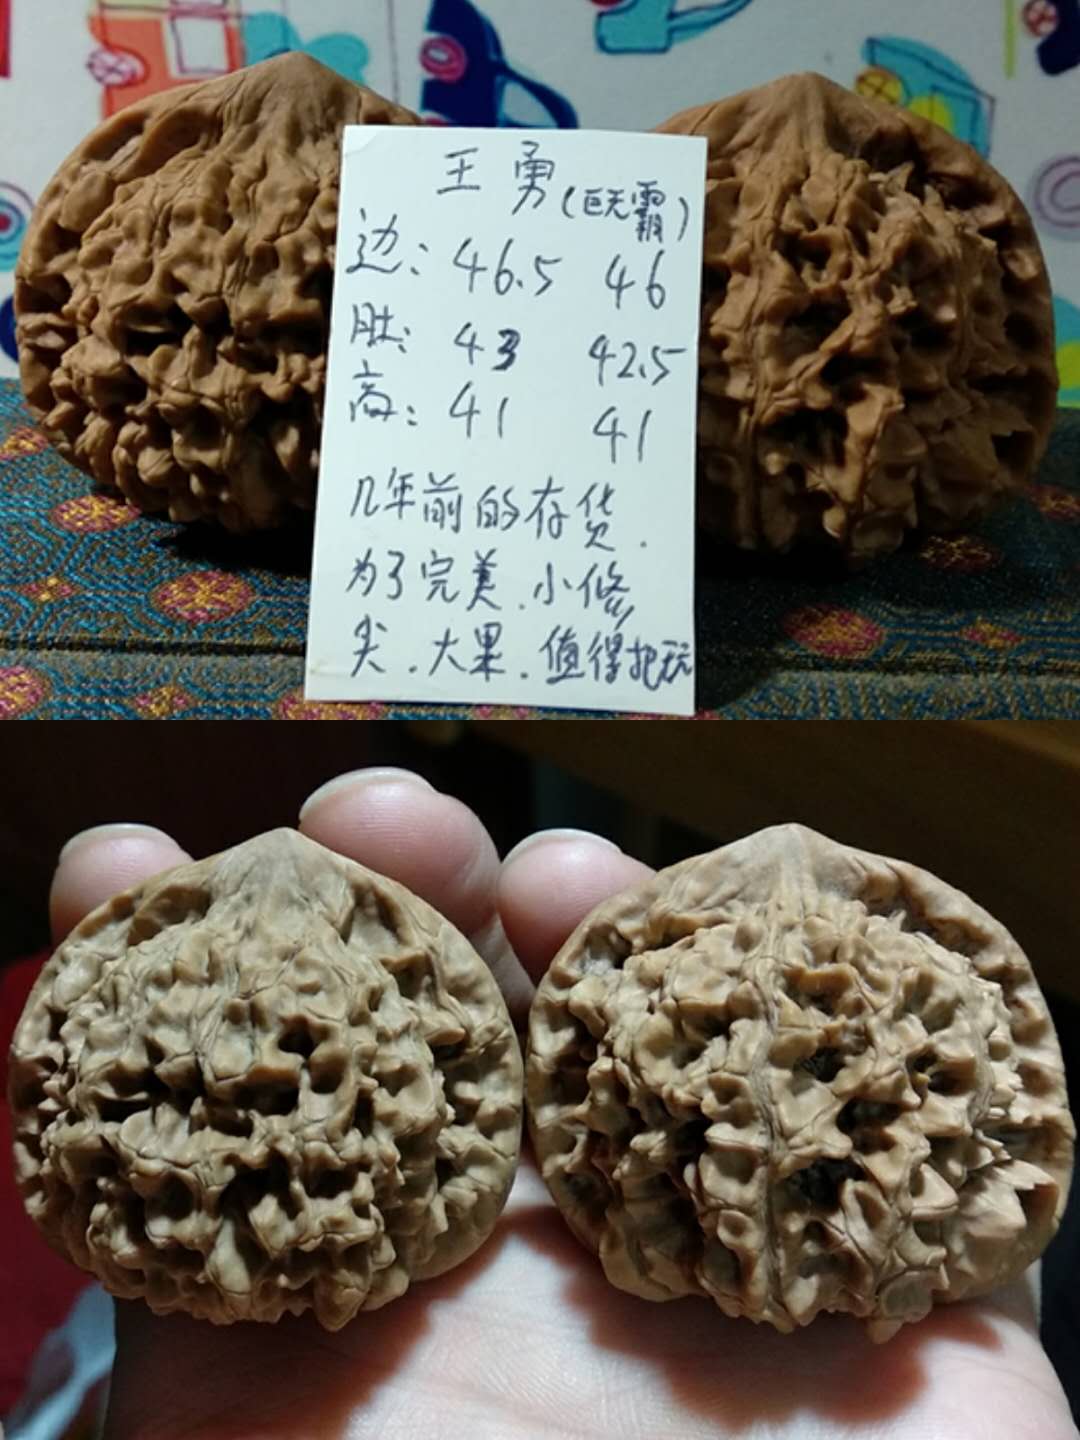 王勇(巨无霸)
边: 46.5 46
肚: 43 42.5
高: 41 41
几年前的存货.
为了完美.小修
尖.大果.值得把玩